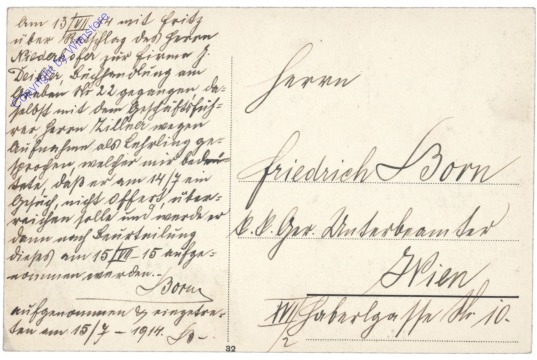 Am 13/VII 14 mit Fritz
über Ratschlag des Herrn
Niederhofer zur Firma J.
Buchhandlung am
Graben Nr 22 gegangen da-
selbst mit dem Geschäftsfüh-
rer Herrn Zillner wegen
Aufnahme als Lehrling ge-
sprochen, welcher mir bedeu-
tete, daß er am 14/7 ein
Gesuch, nicht Offert, über-
reichen solle und werde er
dann nach Beurteilung
dieses am 15/VII - 15 aufge-
nommen werden.-
Born
aufgenommen & eingetre-
ten am 15/7 - 1914.
Copyright by Wildstore
32
Herrn
Friedrich Born
k.k. Ger. Unterbeamter
Wien
XVI/2 Haberlgasse Nr 10.